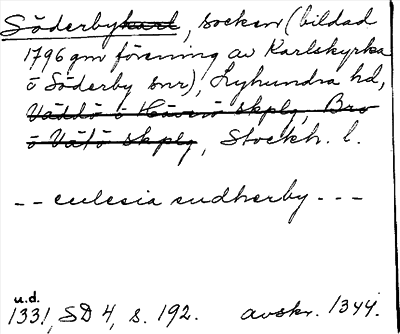 Söderbykarl, socken (bildad
1796 gm förening av Karlskyrka
o Söderby snr), Lyhundra hd,
Väddö o Häverö skplg, Bro
o Vätö skplg, Stockh. l.
-- eclesia sudherby ---
u.d.
1331, SD 4, s. 192. avskr. 1344.